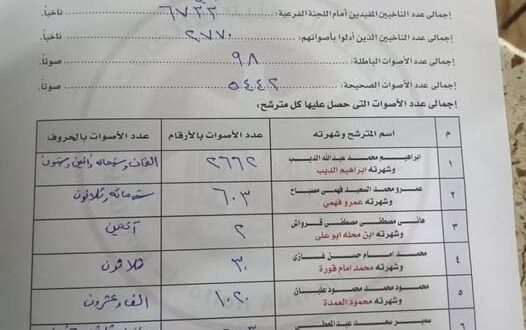 إجمالى عدد الناخبين المقيدين أمام اللجنة الفرعية: ٦٧٣٣ ناخباً.
إجمالى عدد الناخبين الذين أدلوا بأصواتهم: ٢٧٧٠ ناخباً.
عدد الأصوات الباطلة: ٩٨ صوتاً.
عدد الأصوات الصحيحة: ٥٤٤٢ صوتاً.
إجمالى عدد الأصوات التى حصل عليها كل مترشح:
م اسم المترشح وشهرته عدد الأصوات بالأرقام عدد الأصوات بالحروف
١ ابراهيم محمد عبدالله الديب ٢٦٦٢ الفان وستمائة واثنين وستون
وشهرته ابراهيم الديب
٢ عمرو محمد السعيد فهمى مصباح ٦٠٣ ستمائة وثلاثون
وشهرته عمرو فهمي
٣ هانى مصطفى مصطفى فرواش ٢ أثنين
وشهرته ابن محله ابو على
٤ محمد امام حسن غازى ٣٠ ثلاثون
وشهرته محمد امام قورة
٥ محمود محمد محمود عليان ١٠٢٠ الف وعشرون
وشهرته محمود العمدة
٦ سمير سعد عبد المعطى